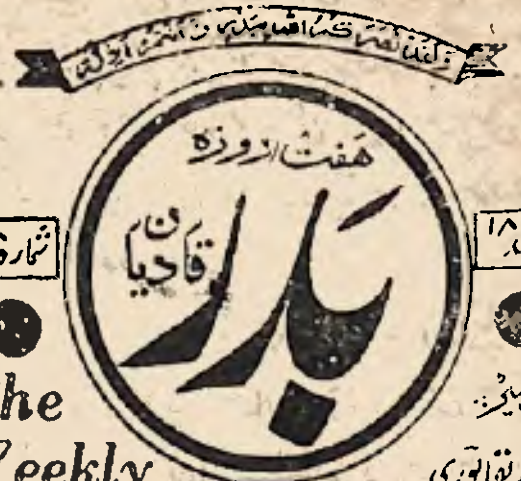 وَلَقَدْ نَصَرَكُمُ اللّٰهُ بِبَدْرٍ وَّاَنْتُمْ اَذِلَّةٌ
ہفت روزہ
بدر
قادیان
شمار
۱۸
The
Weekly
بقاپوری